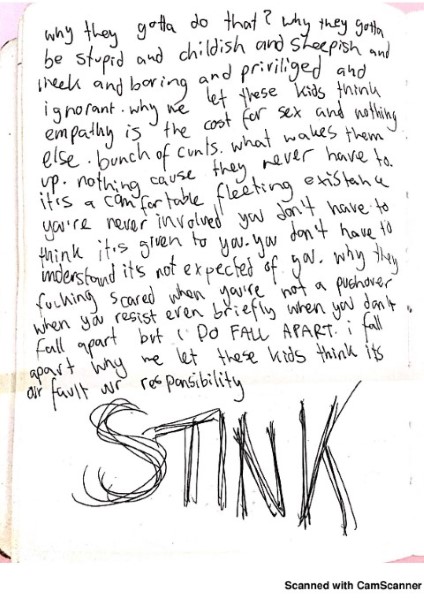 why they gotta do that? why they gotta
be stupid and childish and sheepish and
meek and boring and priviliged and
ignorant. why we let these kids think
empathy is the cost for sex and nothing
else. bunch of cunts. what wakes them
up. nothing cause they never have to.
it's a comfortable fleeting existance
you're never involved you don't have to
think it's given to you. you don't have to
understand it's not expected of you. why they
fucking scared when you're not a pushover
when you resist even briefly when you don't
fall apart but i DO FALL APART. i fall
apart why we let these kids think its
our fault our responsibility
STINK
Scanned with CamScanner